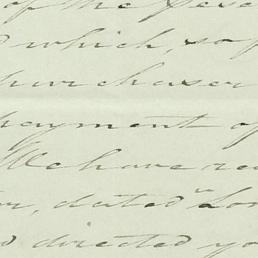 of the
which, so
purchaser
payment of
We have re
dated
directed yo